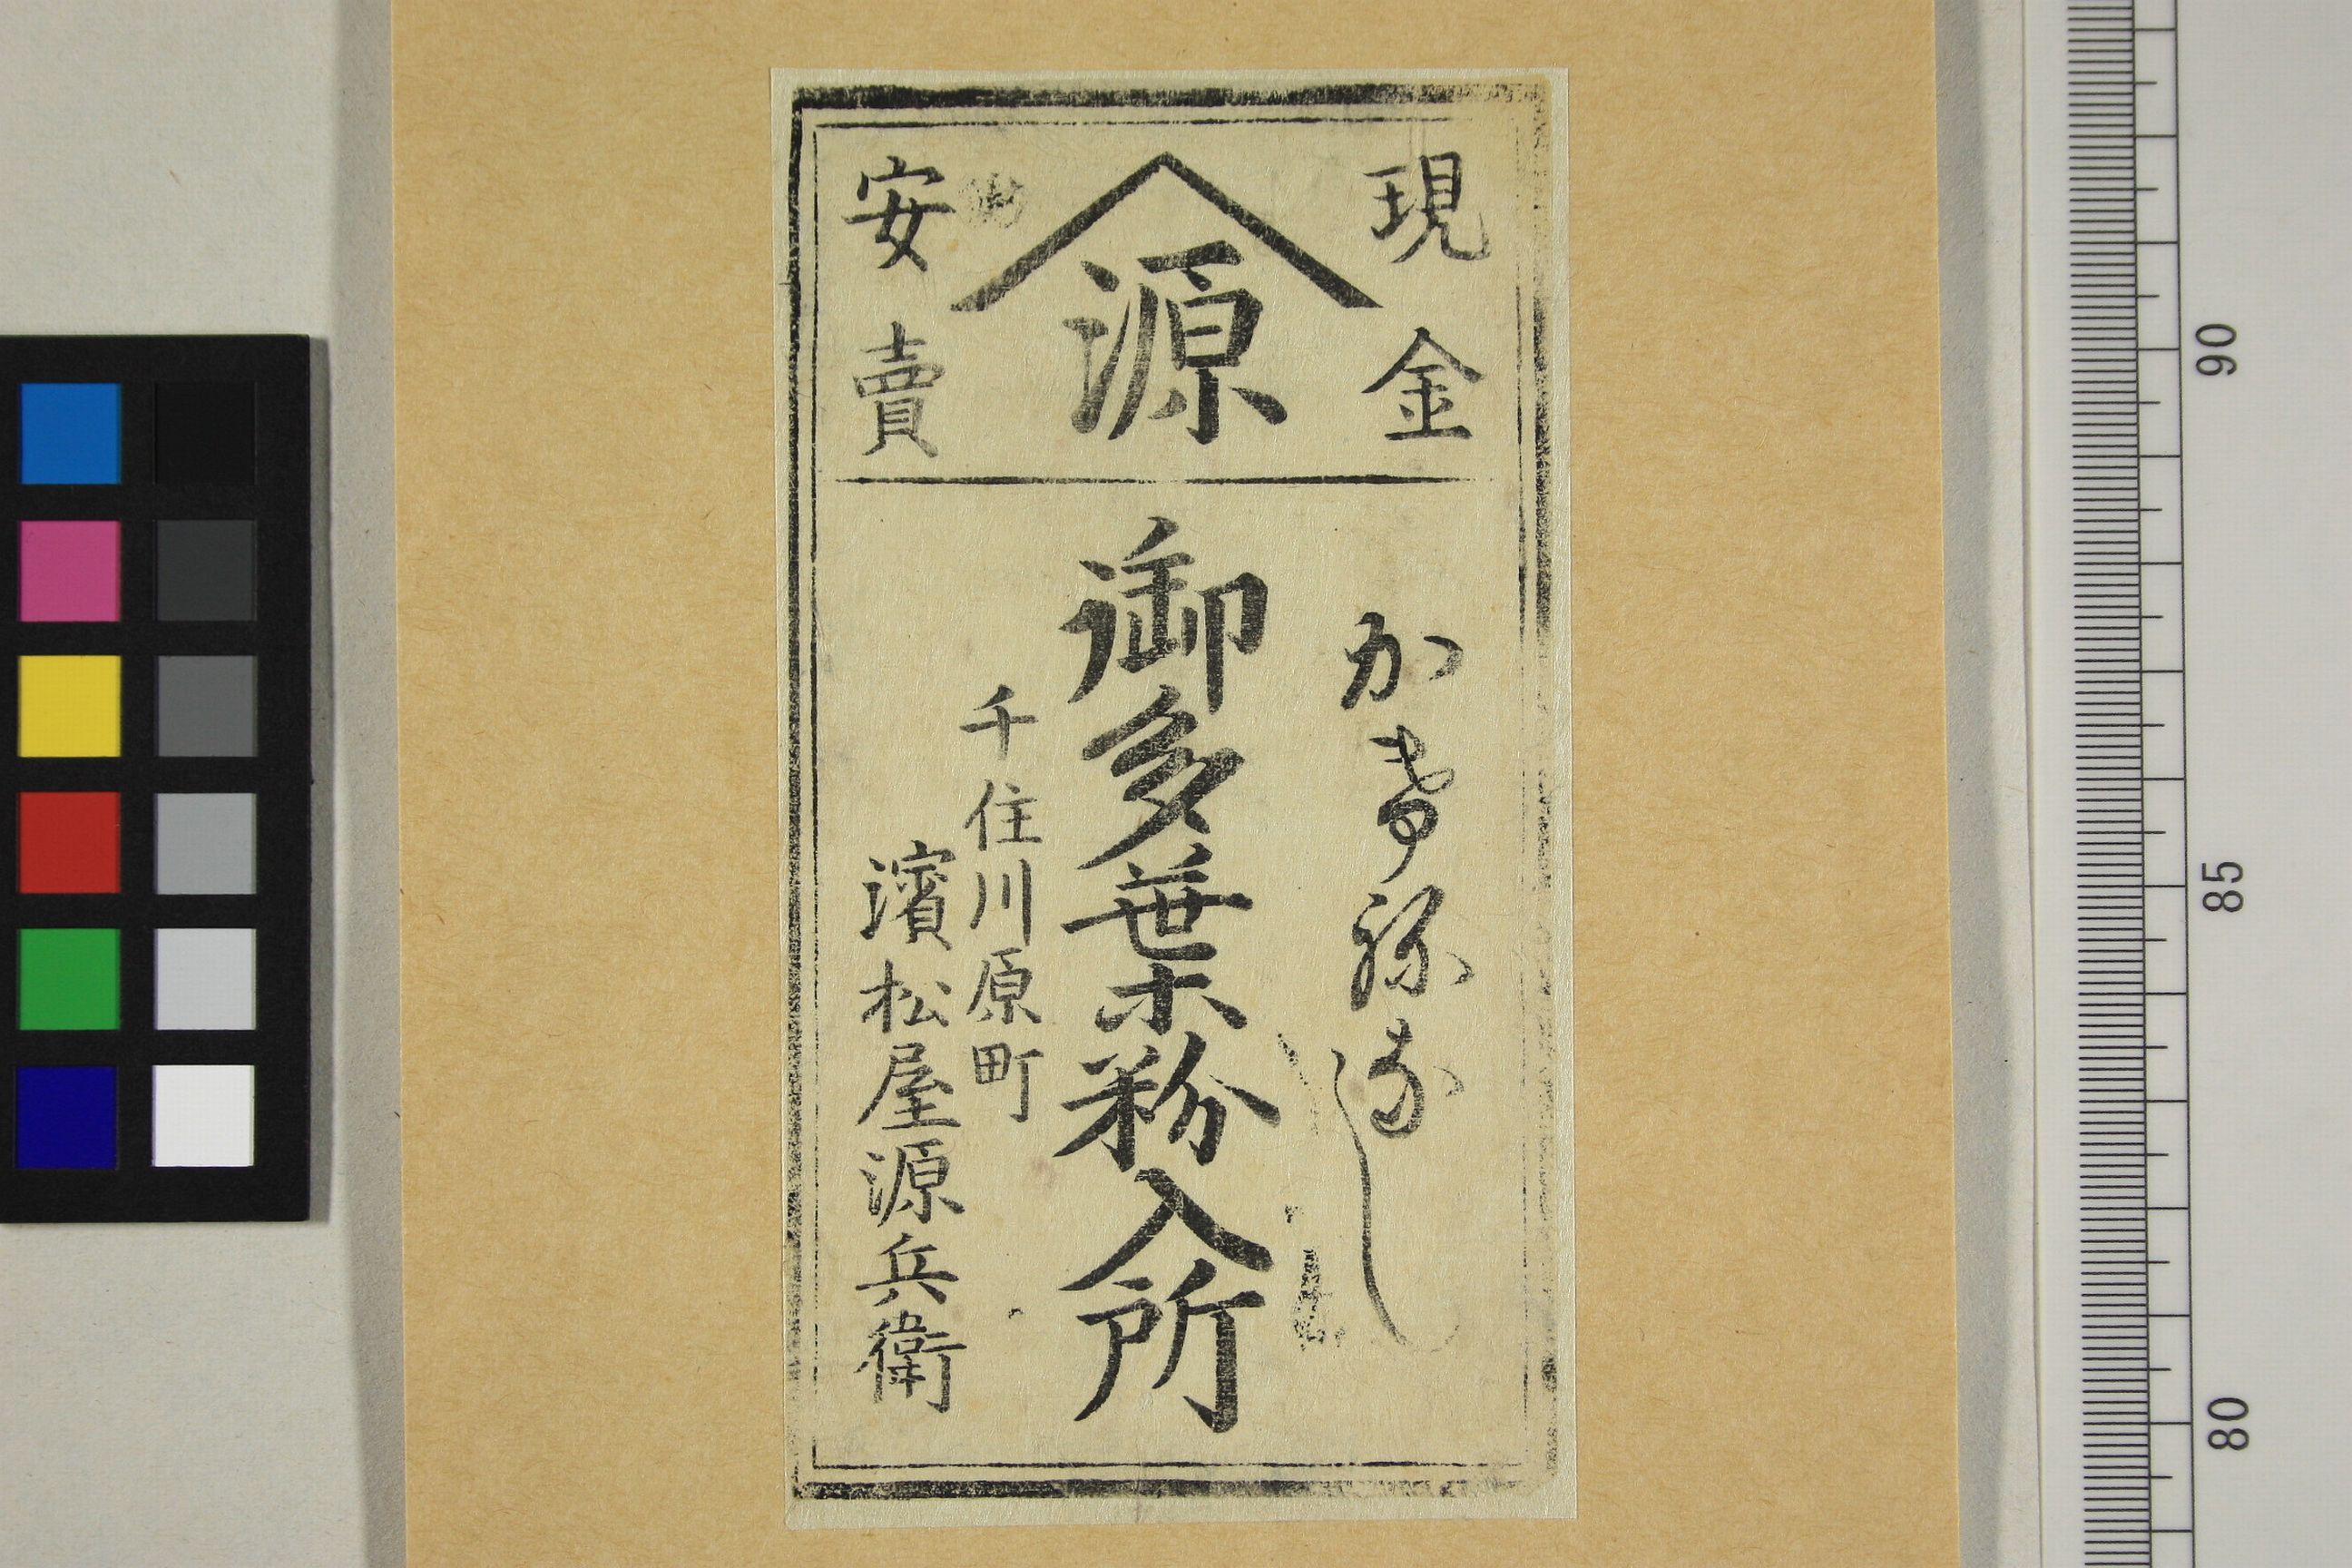 現金
源
安賣
かけねなし
御多葉粉入所
千住川原町
濱松屋源兵衛
90
85
80